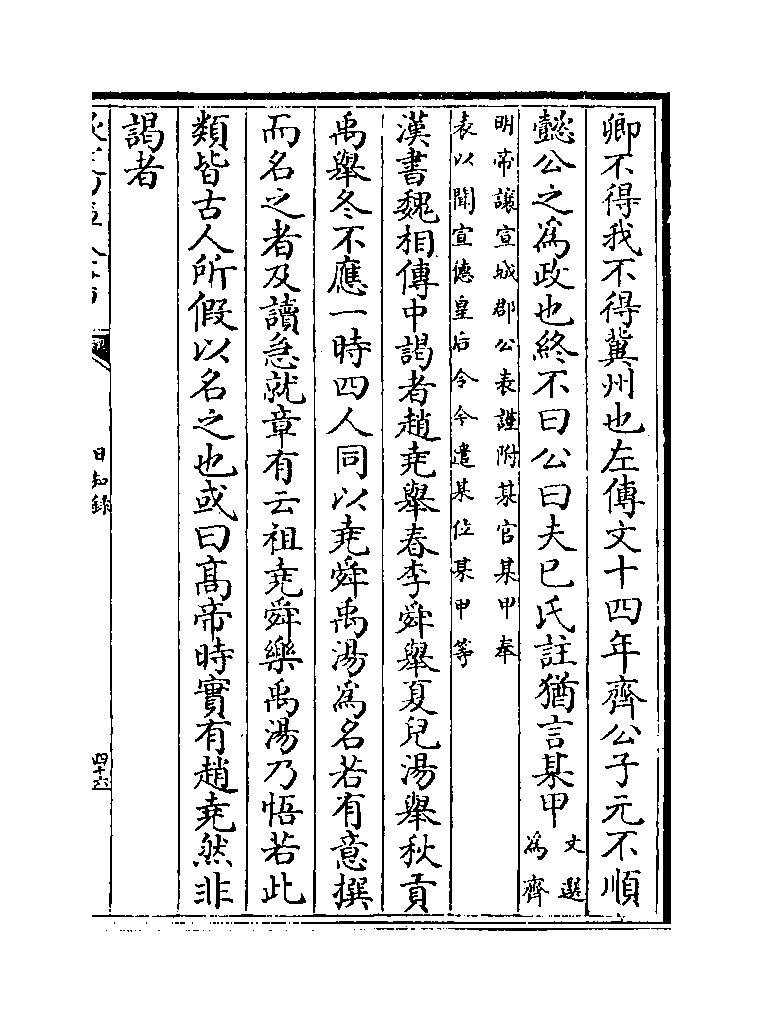 卿不得我不得冀州也左傳文十四年齊公子元不順
懿公之為政也終不曰公曰夫已氏註猶言某甲文選為齊
明帝讓宣城郡公表謹附某官某甲奉
表以聞宣德皇后令今遣某位某甲等
漢書魏相傳中謁者趙堯舉春李舜舉夏兒湯舉秋貢
禹舉冬不應一時四人同以堯舜禹湯為名若有意撰
而名之者及讀急就章有云祖堯舜樂禹湯乃悟若此
類皆古人所假以名之也或曰髙帝時實有趙堯然非
謁者
日知錄
四十六